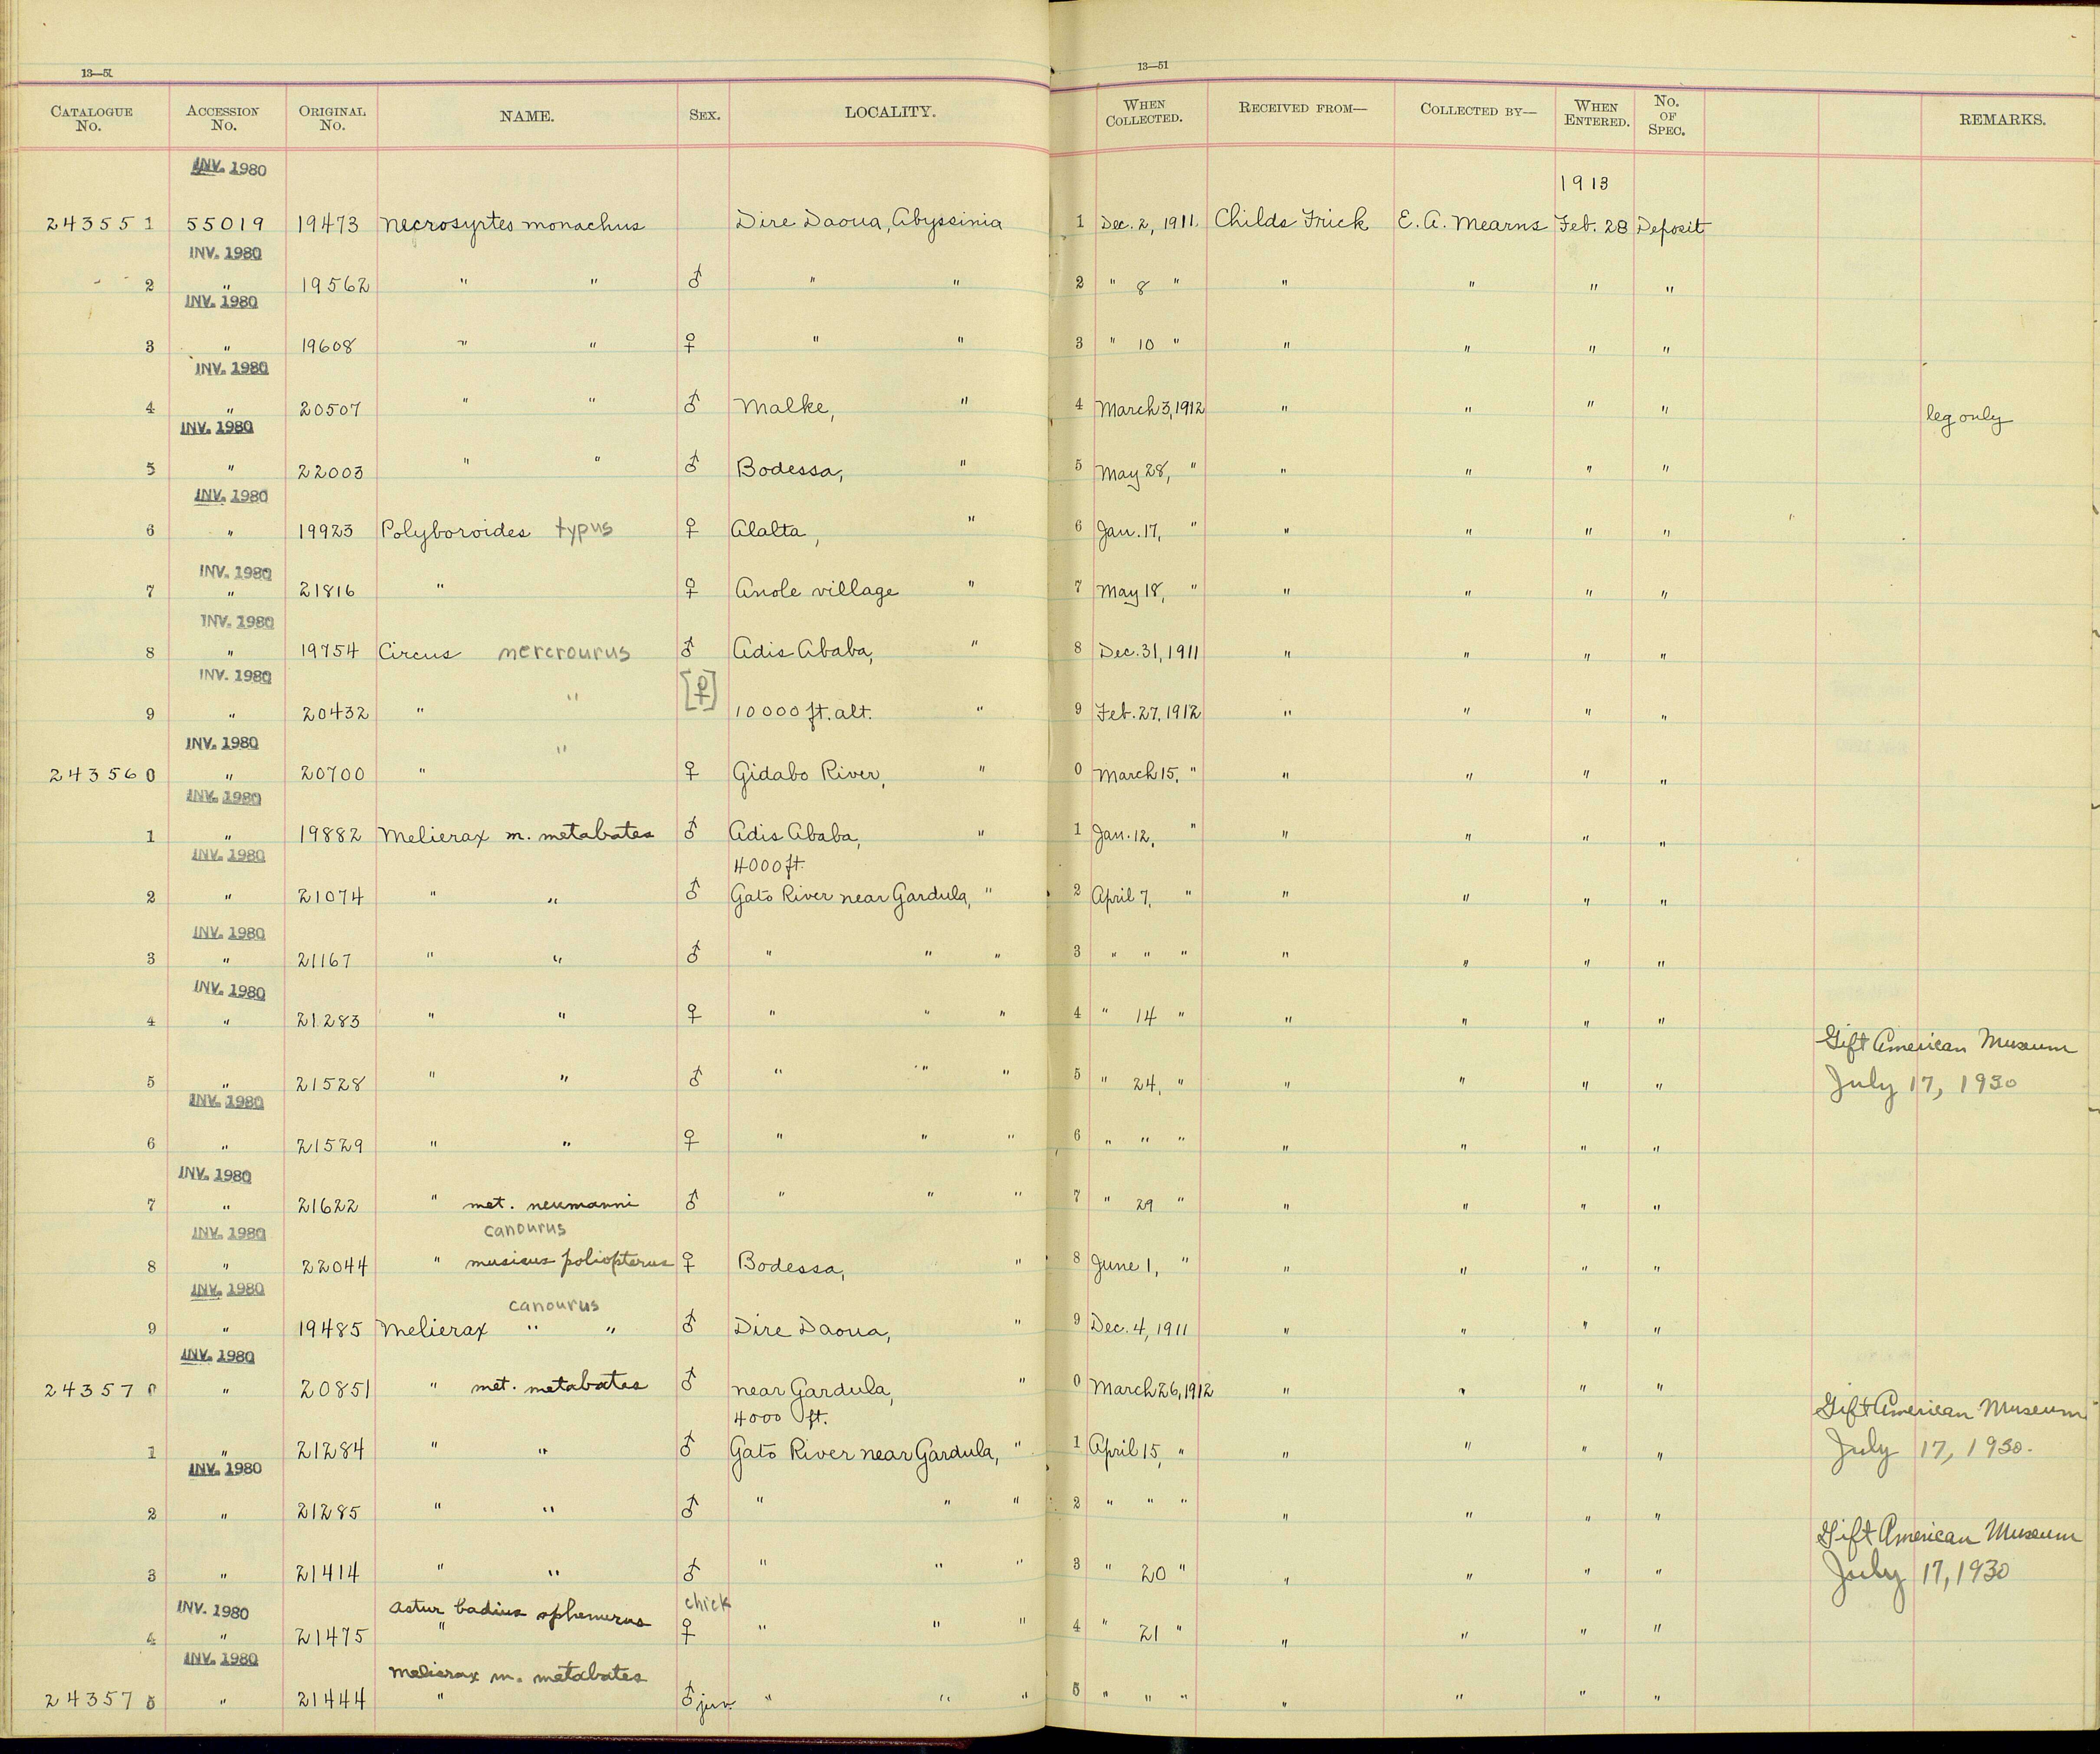 13—51 13—51
CATALOGUE No. ACCESSION No. ORIGINAL No. NAME. SEX. LOCALITY. WHEN COLLECTED. RECEIVED FROM— COLLECTED BY— WHEN ENTERED. No. OF SPEC. REMARKS.
INV. 1980
1913
243551 55019 19473 Necrosyrtes monachus Dire Daoua, Abyssinia 1 Dec. 2, 1911. Childs Frick E. A. Mearns Feb. 28 Deposit
INV. 1980
2 " 19562 " " ♂ " " 2 " 8 " " " " "
INV. 1980
3 " 19608 " " ♀ " " 3 " 10 " " " " "
INV. 1980
4 " 20507 " " ♂ Malke, " 4 March 3, 1912 " " " " leg only
INV. 1980
5 " 22003 " " ♂ Bodessa, " 5 May 28, " " " " "
INV. 1980
6 " 19923 Polyboroides typus ♀ Alalta, " 6 Jan. 17, " " " " "
INV. 1980
7 " 21816 " ♀ Anole village " 7 May 18, " " " " "
INV. 1980
8 " 19754 Circus mercrourus ♂ Adis Ababa, " 8 Dec. 31, 1911 " " " "
INV. 1980
9 " 20432 " " [♀] 10000 ft. alt. " 9 Feb. 27, 1912 " " " "
INV. 1980
243560 " 20700 " " ♀ Gidabo River, " 0 March 15, " " " " "
INV. 1980
1 " 19882 Melierax m. metabates ♂ Adis Ababa, " 1 Jan. 12, " " " " "
INV. 1980 4000 ft.
2 " 21074 " " ♂ Gato River near Gardula, " 2 April 7, " " " " "
INV. 1980
3 " 21167 " " ♂ " " " 3 " " " " " " "
INV. 1980
4 " 21283 " " ♀ " " " 4 " 14 " " " " "
Gift American Museum
5 " 21528 " " ♂ " " " 5 " 24, " " " " " July 17, 1930
INV. 1980
6 " 21529 " " ♀ " " " 6 " " " " " " "
INV. 1980
7 " 21622 " met. neumanni ♂ " " " 7 " 29 " " " " "
INV. 1980 canourus
8 " 22044 " musicus poliopterus ♀ Bodessa, " 8 June 1, " " " " "
INV. 1980
canourus
9 " 19485 Melierax " " ♂ Dire Daoua, " 9 Dec. 4, 1911 " " " "
INV. 1980
243570 " 20851 " met. metabates ♂ near Gardula, " 0 March 26, 1912 " " " "
4000 ft. Gift American Museum
1 " 21284 " " ♂ Gato River near Gardula, " 1 April 15, " " " " " July 17, 1930.
INV. 1980
2 " 21285 " " ♂ " " " 2 " " " " " " "
Gift American Museum
3 " 21414 " " ♂ " " " 3 " 20 " " " " " July 17, 1930
INV. 1980 Astur badius sphenurus chick
4 " 21475 " ♀ " " " 4 " 21 " " " " "
INV. 1980 Melierax m. metabates
243575 " 21444 " ♂ juv. " " " 5 " " " " " " "